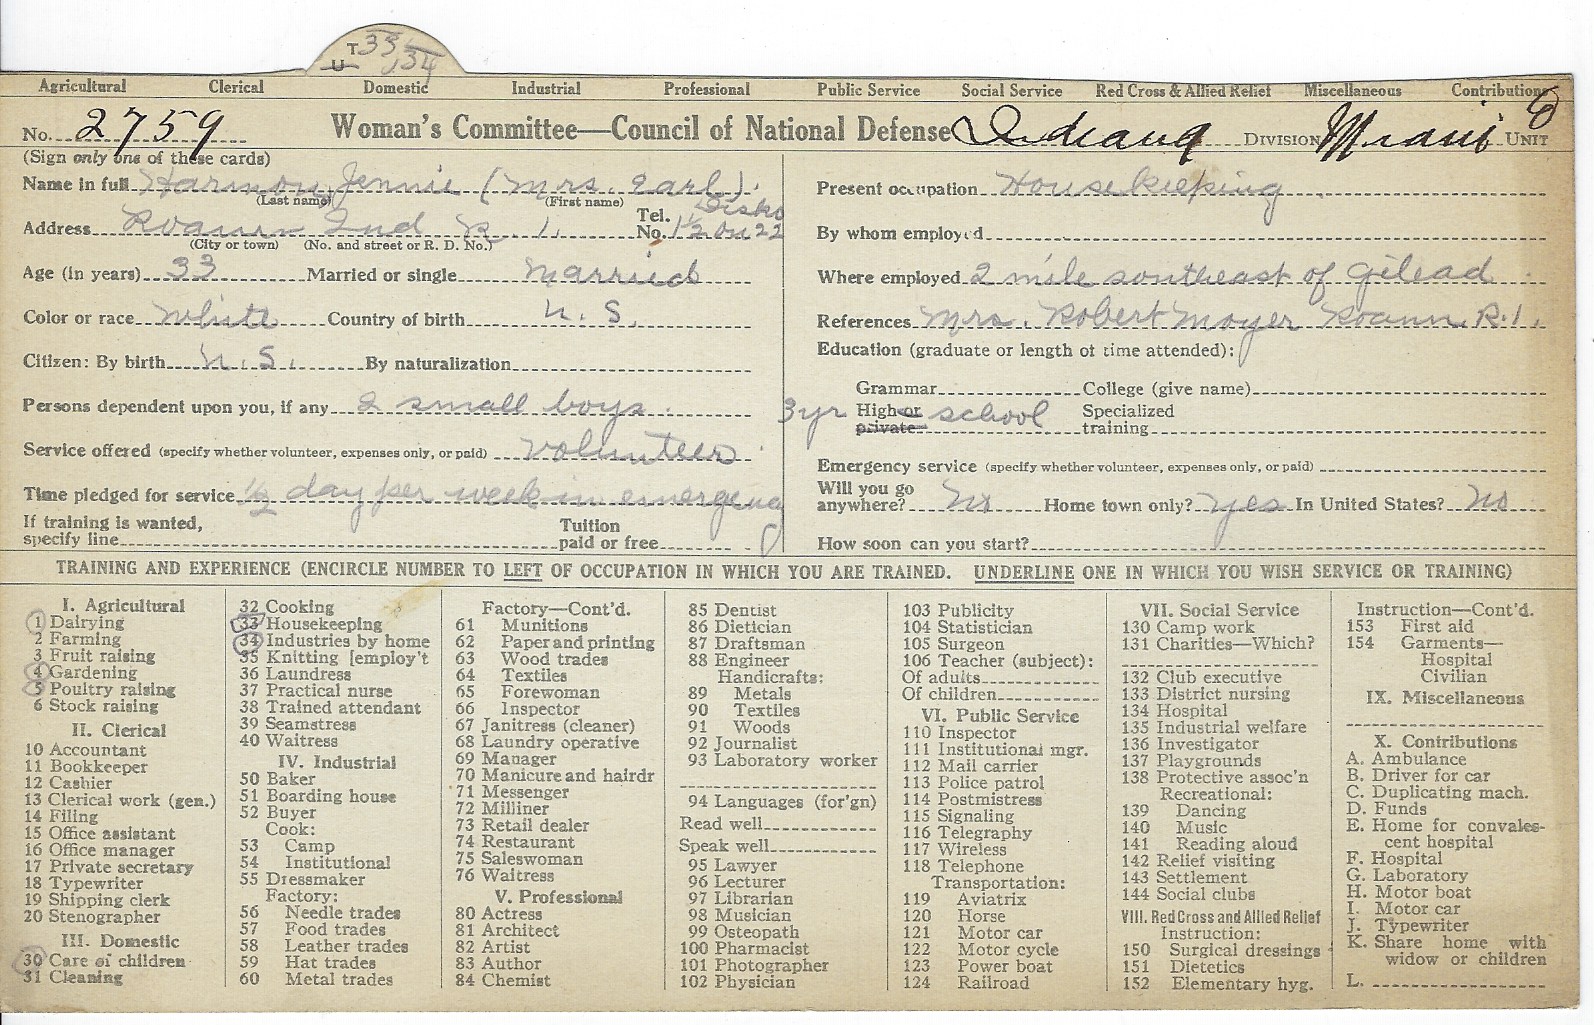 T 33
U 34
Agricultural Clerical Domestic Industrial Professional Public Service Social Service Red Cross & Allied Relief Miscellaneous Contributions
No. 2759 Woman's Committee—Council of National Defense Indiana DIVISION Miami UNIT
(Sign only one of these cards)
Name in full Harmon, Jennie (Mrs. Earl).
(Last name) (First name)
Address Roann Ind R 1. Tel. No. Disko 1½ on 22
(City or town) (No. and street or R. D. No.)
Age (in years) 33 Married or single Married
Color or race White Country of birth U. S.
Citizen: By birth U. S. By naturalization
Persons dependent upon you, if any 2 small boys.
Service offered (specify whether volunteer, expenses only, or paid) Volunteer
Time pledged for service ½ day per week in emergency
If training is wanted, specify line Tuition paid or free
Present occupation Housekeeping
By whom employed
Where employed 2 mile southeast of Gilead
References Mrs. Robert Moyer Roann. R.1.
Education (graduate or length of time attended):
Grammar College (give name)
3 yr High or private school Specialized training
Emergency service (specify whether volunteer, expenses only, or paid)
Will you go anywhere? No Home town only? Yes In United States? No
How soon can you start?
TRAINING AND EXPERIENCE (ENCIRCLE NUMBER TO LEFT OF OCCUPATION IN WHICH YOU ARE TRAINED. UNDERLINE ONE IN WHICH YOU WISH SERVICE OR TRAINING)
I. Agricultural
1 Dairying
2 Farming
3 Fruit raising
4 Gardening
5 Poultry raising
6 Stock raising
II. Clerical
10 Accountant
11 Bookkeeper
12 Cashier
13 Clerical work (gen.)
14 Filing
15 Office assistant
16 Office manager
17 Private secretary
18 Typewriter
19 Shipping clerk
20 Stenographer
III. Domestic
30 Care of children
31 Cleaning
32 Cooking
33 Housekeeping
34 Industries by home
35 Knitting [employ't
36 Laundress
37 Practical nurse
38 Trained attendant
39 Seamstress
40 Waitress
IV. Industrial
50 Baker
51 Boarding house
52 Buyer
Cook:
53 Camp
54 Institutional
55 Dressmaker
Factory:
56 Needle trades
57 Food trades
58 Leather trades
59 Hat trades
60 Metal trades
Factory—Cont'd.
61 Munitions
62 Paper and printing
63 Wood trades
64 Textiles
65 Forewoman
66 Inspector
67 Janitress (cleaner)
68 Laundry operative
69 Manager
70 Manicure and hairdr
71 Messenger
72 Milliner
73 Retail dealer
74 Restaurant
75 Saleswoman
76 Waitress
V. Professional
80 Actress
81 Architect
82 Artist
83 Author
84 Chemist
85 Dentist
86 Dietician
87 Draftsman
88 Engineer
Handicrafts:
89 Metals
90 Textiles
91 Woods
92 Journalist
93 Laboratory worker
94 Languages (for'gn)
Read well
Speak well
95 Lawyer
96 Lecturer
97 Librarian
98 Musician
99 Osteopath
100 Pharmacist
101 Photographer
102 Physician
103 Publicity
104 Statistician
105 Surgeon
106 Teacher (subject):
Of adults
Of children
VI. Public Service
110 Inspector
111 Institutional mgr.
112 Mail carrier
113 Police patrol
114 Postmistress
115 Signaling
116 Telegraphy
117 Wireless
118 Telephone
Transportation:
119 Aviatrix
120 Horse
121 Motor car
122 Motor cycle
123 Power boat
124 Railroad
VII. Social Service
130 Camp work
131 Charities—Which?
132 Club executive
133 District nursing
134 Hospital
135 Industrial welfare
136 Investigator
137 Playgrounds
138 Protective assoc'n
Recreational:
139 Dancing
140 Music
141 Reading aloud
142 Relief visiting
143 Settlement
144 Social clubs
VIII. Red Cross and Allied Relief
Instruction:
150 Surgical dressings
151 Dietetics
152 Elementary hyg.
Instruction—Cont'd.
153 First aid
154 Garments—
Hospital
Civilian
IX. Miscellaneous
X. Contributions
A. Ambulance
B. Driver for car
C. Duplicating mach.
D. Funds
E. Home for convales-
cent hospital
F. Hospital
G. Laboratory
H. Motor boat
I. Motor car
J. Typewriter
K. Share home with
widow or children
L.